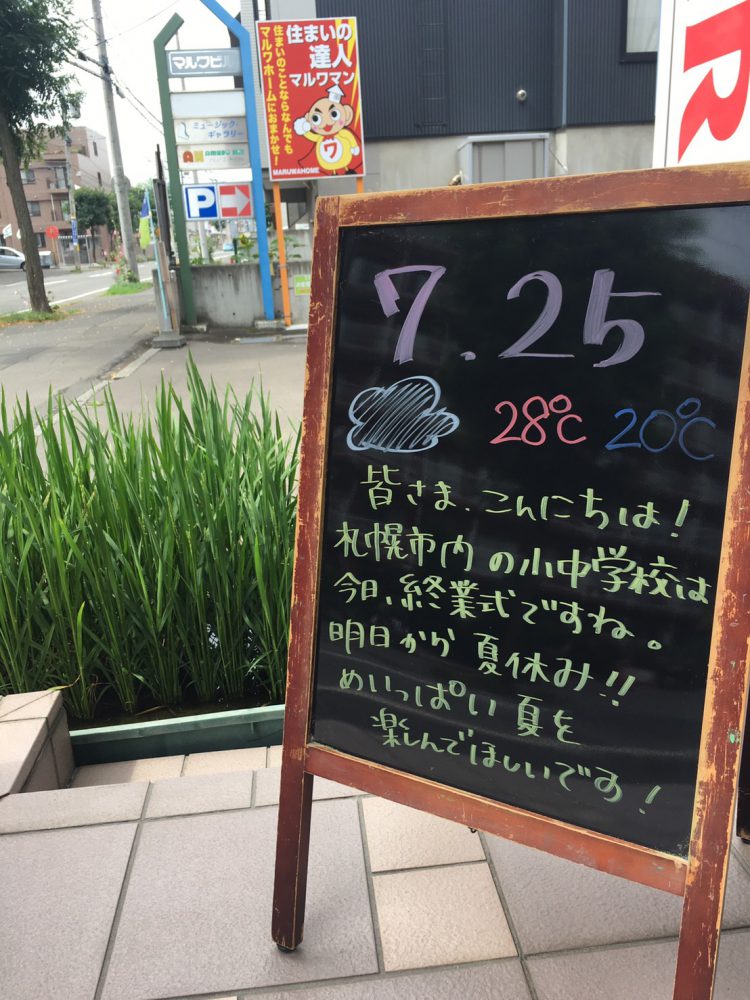 マルワビル
ミュージック・
ギャラリー
P
住まいの
達人
マルワマン
住まいのことならなんでも
マルワホームにおまかせ!
ワ
MARUWAHOME
R
7.25
28℃ 20℃
皆さま、こんにちは!
札幌市内の小中学校は
今日、終業式ですね。
明日から夏休み!!
めいっぱい夏を
楽しんでほしいです!